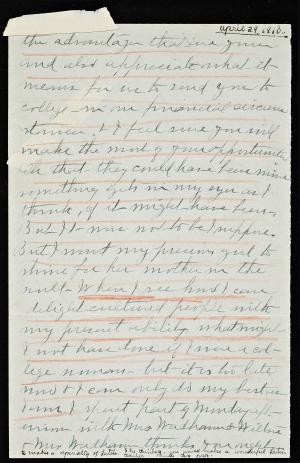 April 29, 1910.
the advantages that are given
and also appreciate what it
means for us to send you to
college in our financial circum
stances, & I feel sure you will
make the most of your opportunities
Oh that they could have been mine
something gets in my eye as I
think, of it might have been.
But It was not to be I suppose.
But I want my precious girl to
shine for her mother in the
When I see how I can
delight cultured people with
my present ability what might
I not have done if I were a col-
lege woman - but it is too late
now & I can only do my best as
I am. I spent part of Monday aft-
ernoon with Mrs Waltham &
& Mrs Waltham thinks you ought
to make a specialty of Latin. She thinks you would make a wonderful Latin